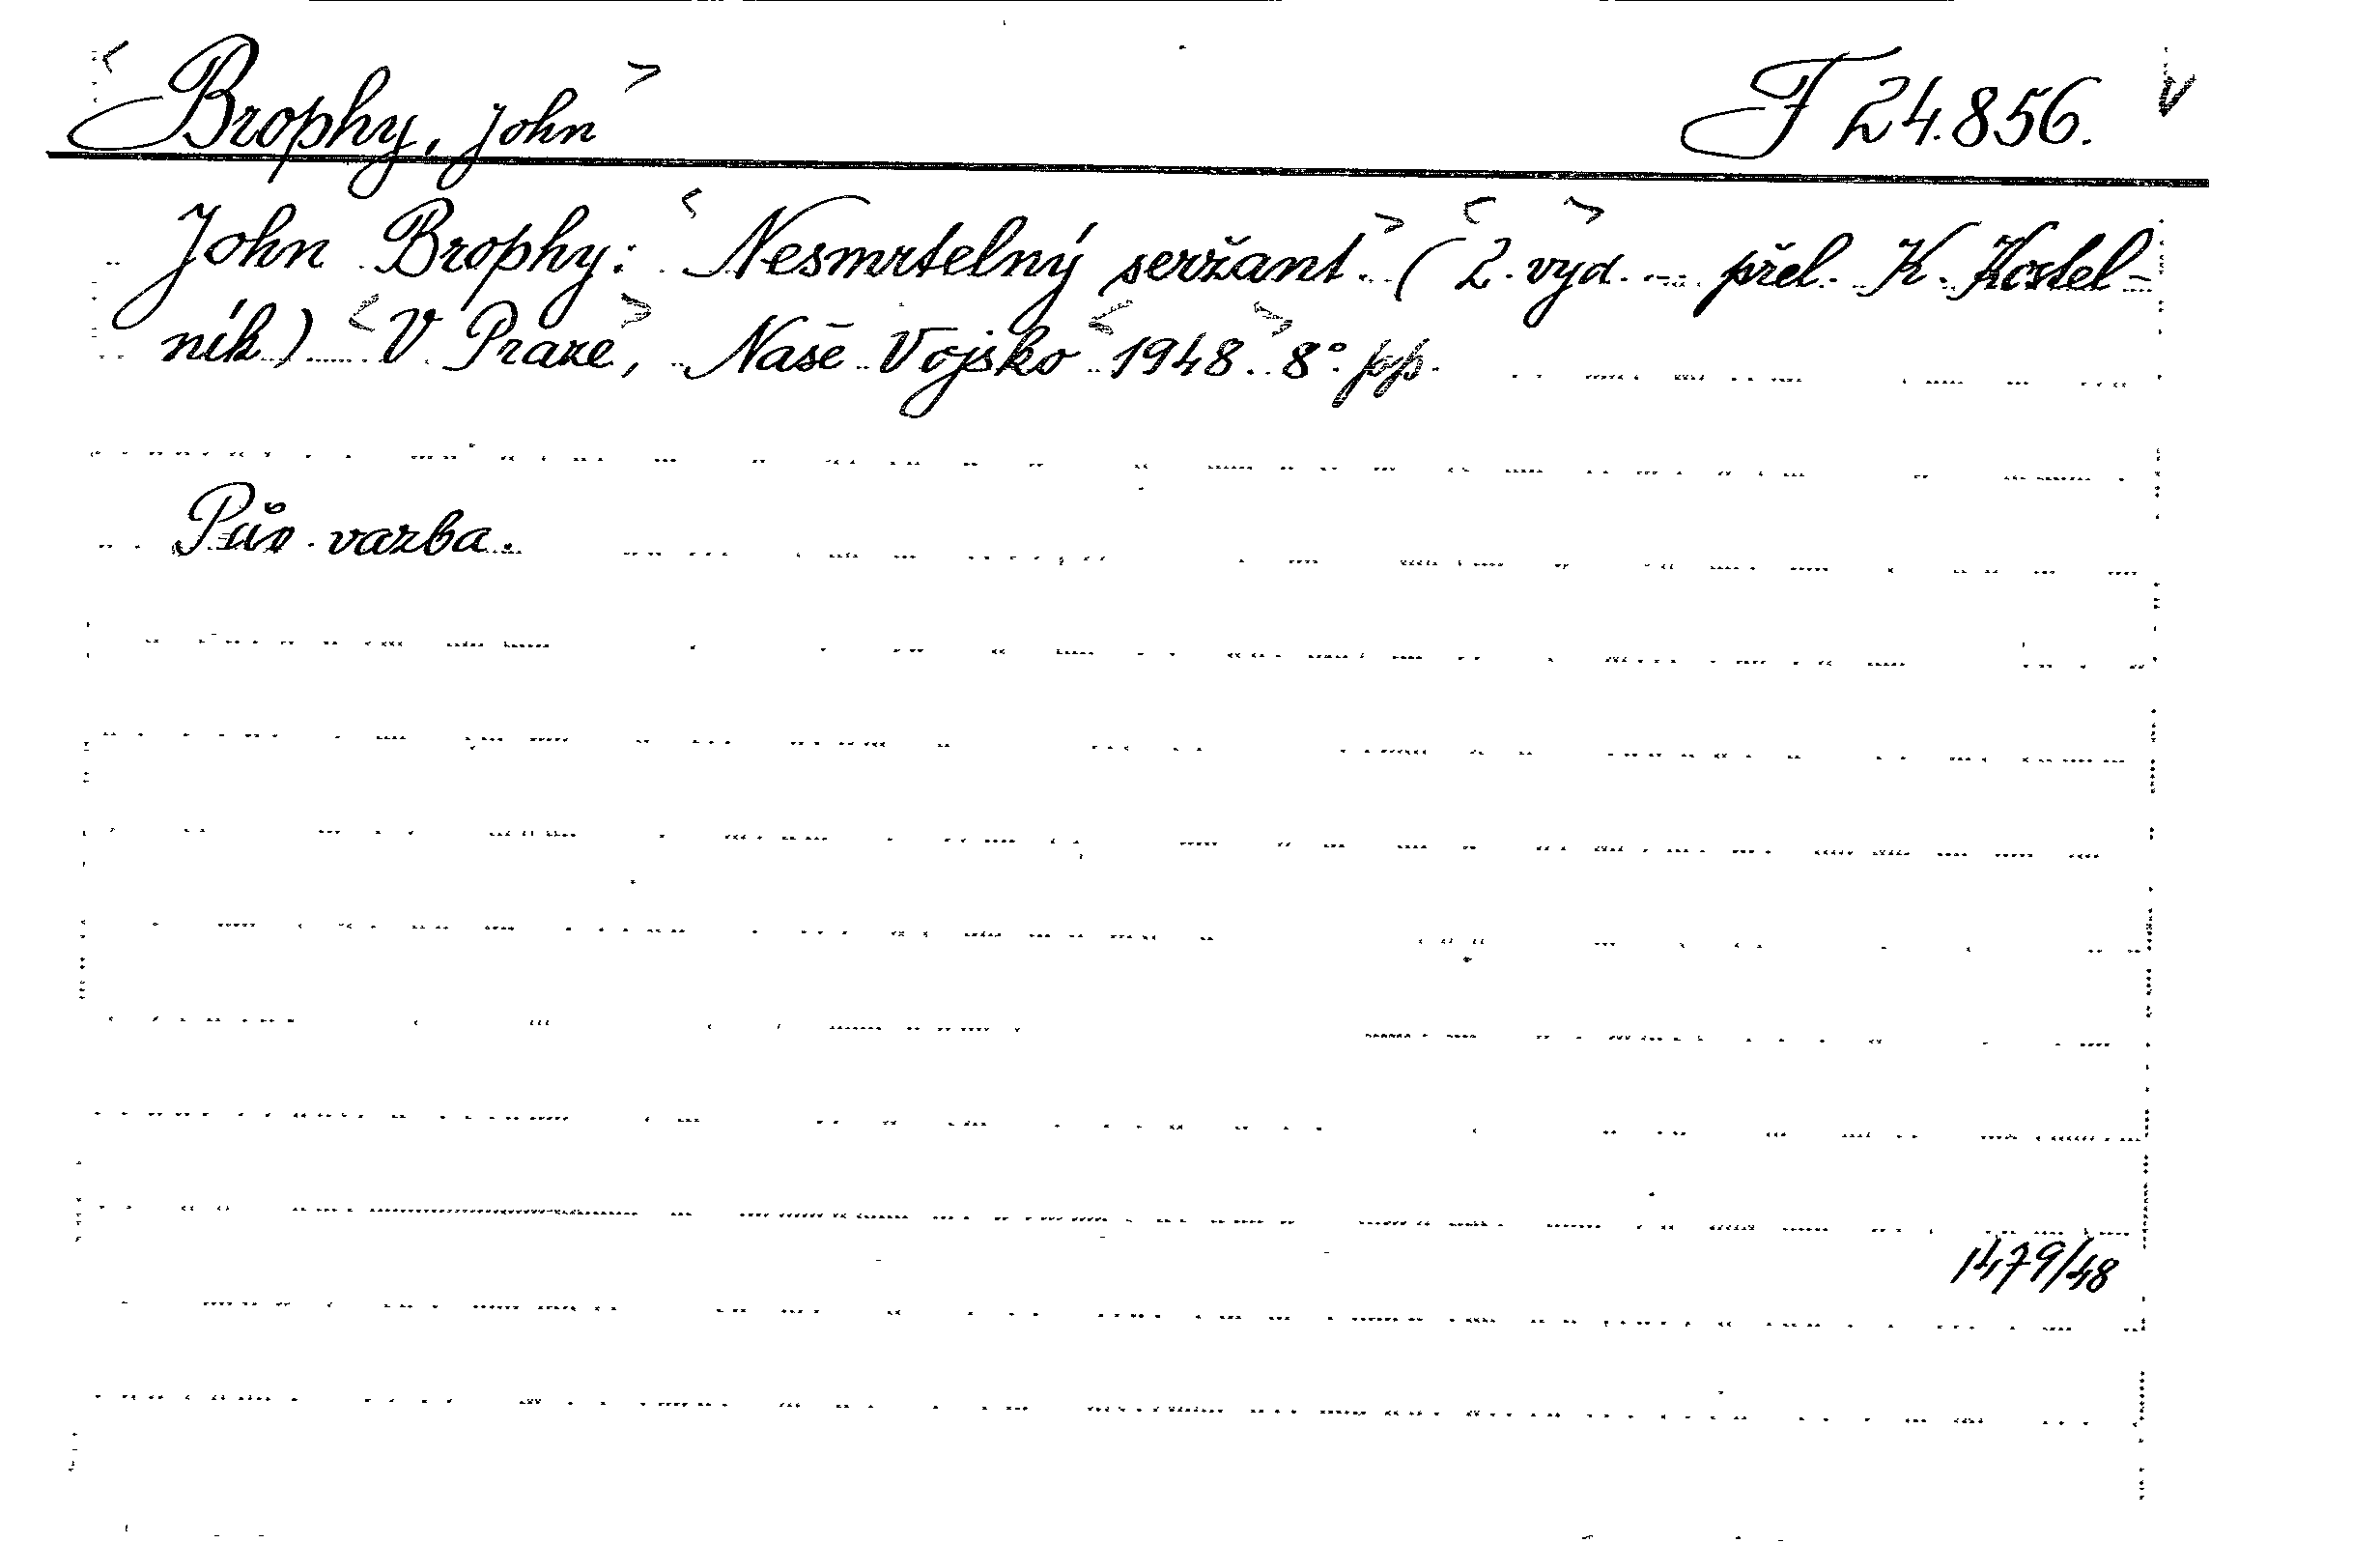 Brophy, John F 24.856.
John Brophy: Nesmrtelný seržant. (2. vyd. - přel. K. Kostel-
ník) V Praze, Naše Vojsko 1948. 8°. pp.
Pův. vazba.